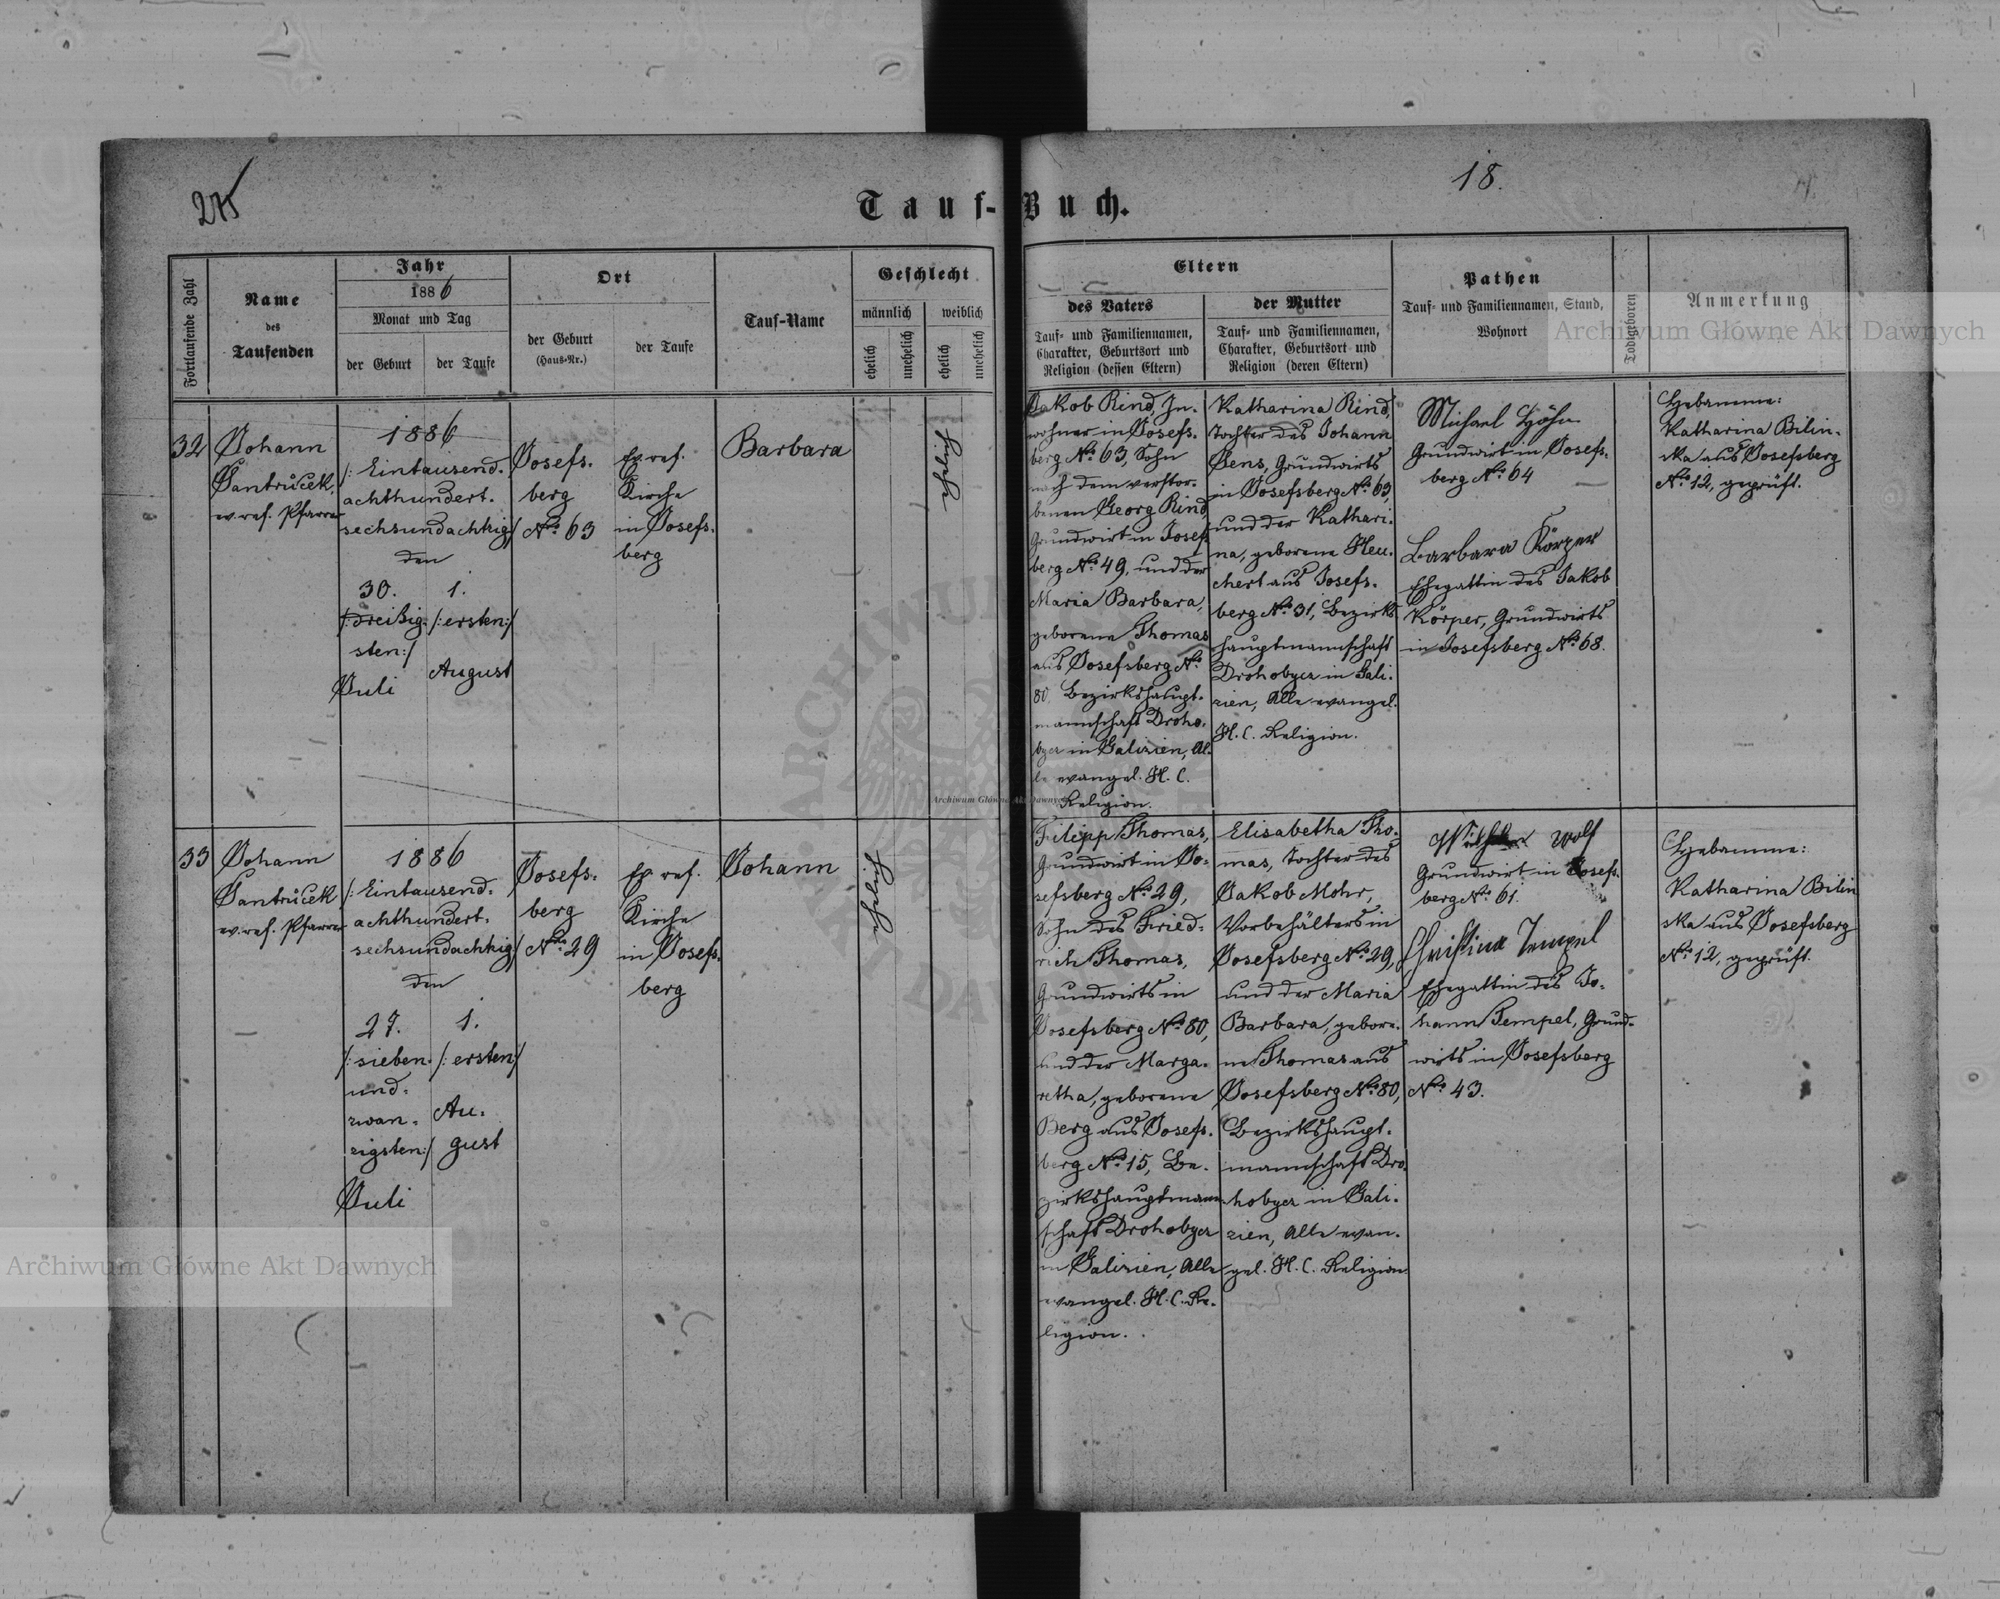 275
18.
Tauf-Buch.
Fortlaufende Zahl
Name
des
Taufenden
Jahr
1886
Monat und Tag
der Geburt
der Taufe
Ort
der Geburt
(Haus-Nr.)
der Taufe
Tauf-Name
Geschlecht
männlich
weiblich
ehelich
unehelich
ehelich
unehelich
Eltern
des Vaters
Tauf- und Familiennamen,
Charakter, Geburtsort und
Religion (dessen Eltern)
der Mutter
Tauf- und Familiennamen,
Charakter, Geburtsort und
Religion (deren Eltern)
Pathen
Tauf- und Familiennamen, Stand,
Wohnort
Todtgeboren
Anmerkung
32
Johann
Jantruček,
ev. ref. Pfarrer
1886
/: Eintausend-
achthundert-
sechsundachtzig/
den
30.
/:dreißig-
sten:/
Juli
1.
/:ersten:/
August
Josefs-
berg
No. 63
Ev. ref.
Kirche
in Josefs-
berg
Barbara
ehelich
Jakob Rind, In-
wohner in Josefs-
berg No. 63, Sohn
nach dem verstor-
benen Georg Rind,
Grundwirt in Josefs-
berg No. 49, und der
Maria Barbara,
geborene Thomas
aus Josefsberg No.
80, Bezirkshaupt-
mannschaft Droho-
bycz in Galizien, Al-
le evangel. H. C.
Religion.
Katharina Rind,
Tochter des Johann
Jens, Grundwirts
in Josefsberg No. 63,
und der Kathari-
na, geborene Heu-
chert aus Josefs-
berg No. 31, Bezirks-
hauptmannschaft
Drohobycz in Gali-
zien, Alle evangel.
H. C. Religion.
Michael Höhn
Grundwirt in Josefs-
berg No. 64
Barbara Körper
Ehegattin des Jakob
Körper, Grundwirts
in Josefsberg No. 68.
Hebamme:
Katharina Bilin-
ska aus Josefsberg
No. 12, geprüft.
33
Johann
Jantruček,
ev. ref. Pfarrer
1886
/: Eintausend-
achthundert-
sechsundachtzig/
den
27.
/:sieben-
und-
zwan-
zigsten:/
Juli
1.
/:ersten:/
Au-
gust
Josefs-
berg
No. 29
Ev. ref.
Kirche
in Josefs-
berg
Johann
ehelich
Filipp Thomas,
Grundwirt in Jo-
sefsberg No. 29,
Sohn des Fried-
rich Thomas,
Grundwirts in
Josefsberg No. 80,
und der Marga-
retha, geborene
Berg aus Josefs-
berg No. 15, Be-
zirkshauptmann-
schaft Drohobycz
in Galizien, Alle
evangel. H. C. Re-
ligion.
Elisabetha Tho-
mas, Tochter des
Jakob Mohr,
Vorbehälters in
Josefsberg No. 29,
und der Maria
Barbara, gebore-
ne Thomas aus
Josefsberg No. 80,
Bezirkshaupt-
mannschaft Dro-
hobycz in Gali-
zien, Alle evan-
gel. H. C. Religion.
Wolf
Grundwirt in Josefs-
berg No. 61.
Christina Tempel
Ehegattin des Jo-
hann Tempel, Grund-
wirts in Josefsberg
No. 43.
Hebamme:
Katharina Bilin
ska aus Josefsberg
No. 12, geprüft.
Archiwum Główne Akt Dawnych
Archiwum Główne Akt Dawnych
Archiwum Główne Akt Dawnych